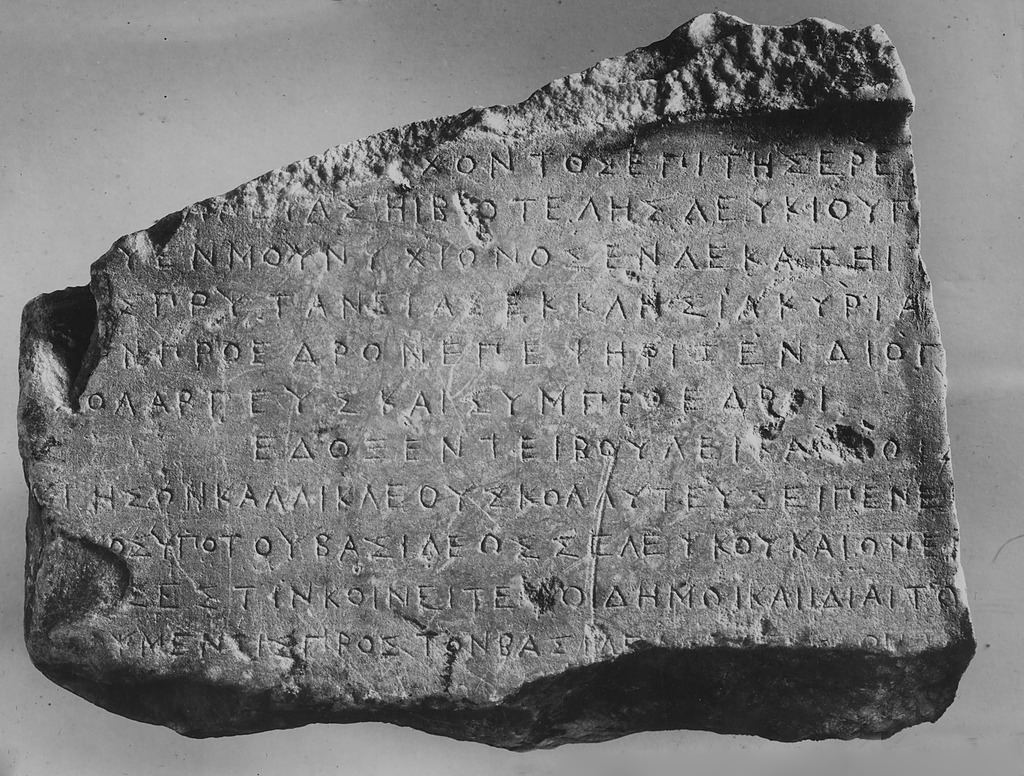 ΧΟΝΤΟΣΕΠΙΤΗΣΕΡΕ
ΗΙΒΙΟΤΕΛΗΣΛΕΥΚΙΟΥΠ
ΕΝΜΟΥΝΥΧΙΩΝΟΣΕΝΔΕΚΑΤΗΙ
ΣΠΡΥΤΑΝΕΙΑΣΕΚΚΛΗΣΙΑΚΥΡΙΑ
ΝΠΡΟΕΔΡΩΝΕΠΕΨΗΦΙΖΕΝΔΙΟΠ
ΟΛΑΡΓΕΥΣΚΑΙΣΥΜΠΡΟΕΔΡΟΙ
ΕΔΟΞΕΝΤΕΙΒΟΥΛΕΙΚΑ
ΤΗΣΩΝΚΑΛΛΙΚΛΕΟΥΣΚΟΛΛΥΤΕΥΣΕΙΠΕΝΕ
ΟΣΥΠΟΤΟΥΒΑΣΙΛΕΩΣΣΕΛΕΥΚΟΥΚΑΙΩΝΕ
ΣΕΣΤΙΝΚΟΙΝΕΙΤΕΤΩΙΔΗΜΩΙΚΑΙΙΔΙΑΙΤΟ
ΥΜΕΝΟΙΣΠΡΟΣΤΟΝΒΑΣΙΛΕ